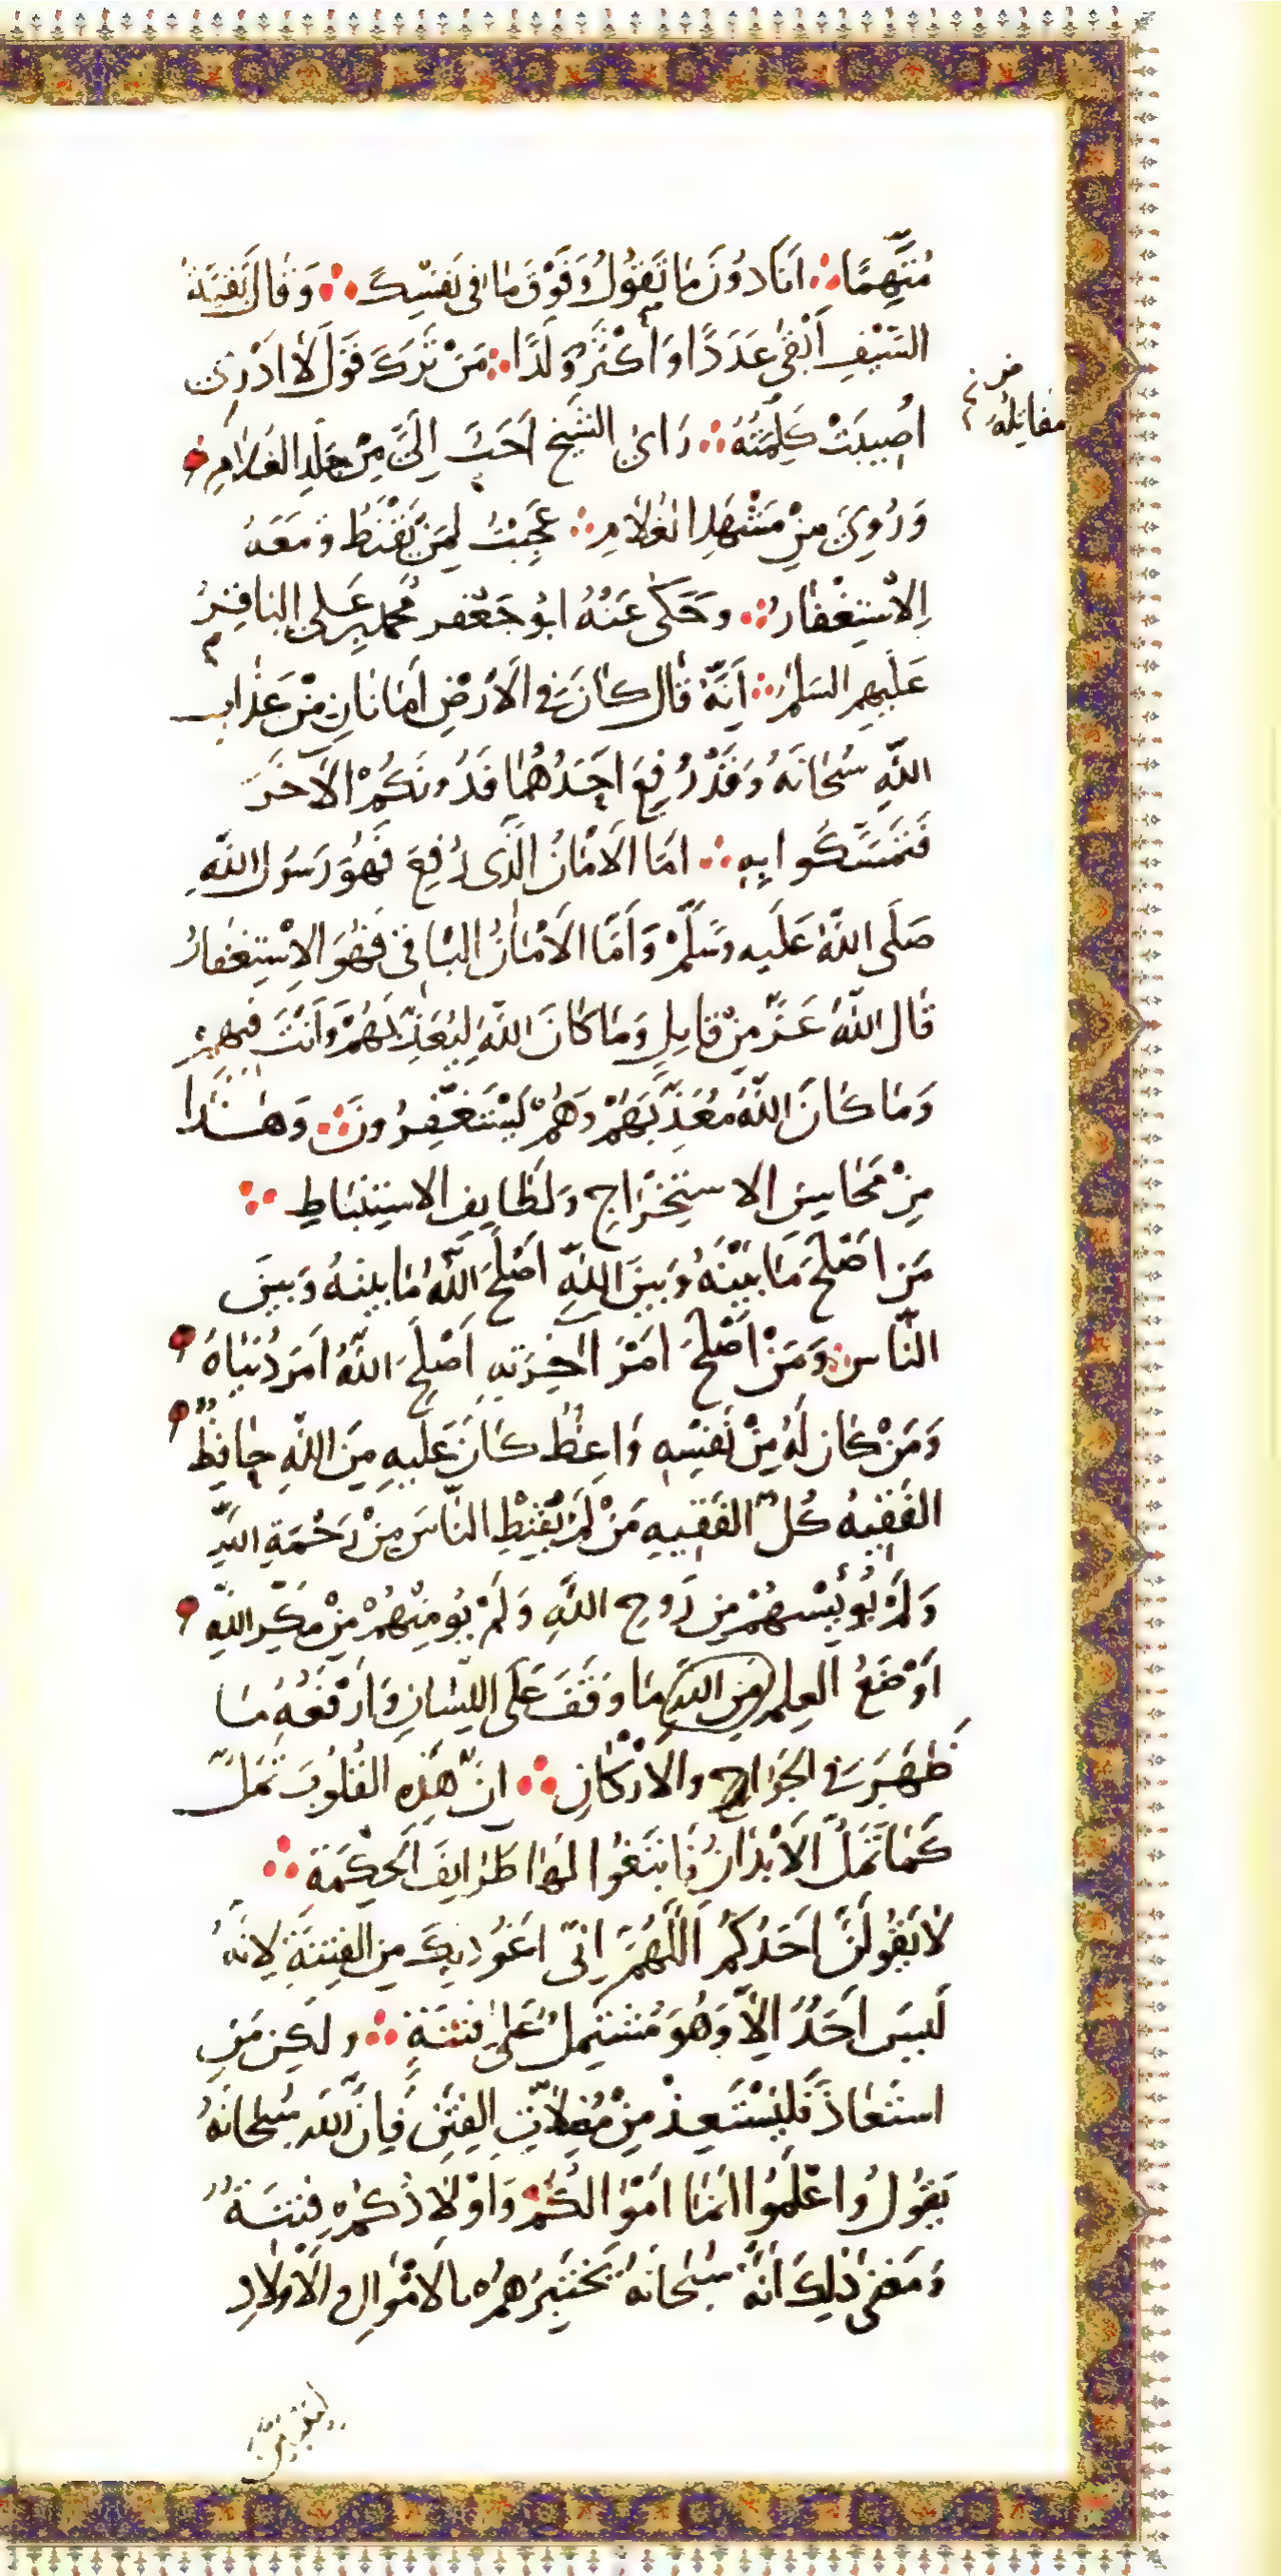 مُتَّهِمًا ∴ اَنَا دُونَ مَا تَقُولُ وَفَوْقَ مَا فِى نَفْسِكَ ∴ وَقَالَ بَقِيَّةُ
السَّيْفِ اَبْقٰى عَدَدًا وَاَكْثَرُ وَلَدًا ∴ مَنْ تَرَكَ قَوْلَ لَا اَدْرِى
اُصِيبَتْ كَلِمَتُهُ ∴ رَاىُ الشَّيْخِ اَحَبُّ اِلَىَّ مِنْ جَلَدِ الغُلَامِ
مقاتله
وَرُوِىَ مِنْ مَشْهَدِ الغُلَامِ ∴ عَجِبْتُ لِمَنْ يَقْنَطُ وَمَعَهُ
الِاسْتِغْفَارُ ∴ وحَكٰى عَنْهُ ابُو جَعْفر مُحمد بن عَلى الباقِرُ
عَلَيهِم السَلٰمُ ∴ اَنَّهُ قَالَ كَانَ فِى الْاَرْضِ اَمَانَانِ مِنْ عَذَابِ
اللّٰهِ سُبْحَانَهُ وَقَدْ رُفِعَ اَحَدُهُمَا فَدُونَكُمْ الْآخَرَ
فَتَمَسَّكُوا بِهِ ∴ امَّا الْاَمَانُ الَّذِى رُفِعَ فَهُوَ رَسُولُ اللّٰهِ
صَلَّى اللّٰهُ عَلَيه وسَلَّمْ وَاَمَّا الْاَمَانُ الْبَاقِى فَهُوَ الِاسْتِغْفَارُ
قَالَ اللّٰهُ عَزَّ مِنْ قَايِلٍ وَمَا كَانَ اللّٰهُ لِيُعَذِّبَهُمْ وَاَنْتَ فِيهِمْ
وَمَا كَانَ اللّٰهُ مُعَذِّبَهُمْ وَهُمْ يَسْتَغْفِرُونَ ∴ وَهٰذَا
مِنْ مَحَاسِنِ الاستِخْرَاجِ وَلَطَايِفِ الاسْتِنْبَاطِ ∴
مَن اَصْلَحَ مَا بَيْنَهُ وَبَينَ اللّٰهِ اَصْلَحَ اللّٰهُ مَا بينهُ وَبينَ
النَّاسِ ∴ وَمَنْ اَصْلَحَ امْرَ آخِرَتِهِ اَصْلَحَ اللّٰهُ اَمرَ دُنيَاهُ
وَمَنْ كَان لَهُ مِنْ نَفْسِهِ وَاعِظٌ كَانَ عَلَيهِ مِنَ اللّٰهِ حَافِظٌ
الفَقِيهُ كُلُّ الفَقِيهِ مَنْ لَمْ يُقَنِّطِ النَّاسَ مِنْ رَحْمَةِ اللّٰهِ
وَلَمْ يُؤيِسْهُمْ مِن رَوحِ اللّٰهِ وَلَمْ يُومِنْهُمْ مِنْ مَكْرِ اللّٰهِ
اَوْضَعُ العِلمِ مَا وَقَفَ عَلَى اللِّسَانِ وَاَرْفَعُهُ مَا
ظَهَرَ فِى الجَوَارِحِ والاَرْكَانِ ∴ انَّ هٰذِهِ القُلُوبَ تَمَلُّ
كَمَا تَمَلُّ الْاَبْدَانُ فَابْتَغُوا لهَا طَرَايِفَ الحِكْمَةِ ∴
لَا يَقُولَنَّ اَحَدُكُمْ اَللّٰهُمَّ اِنِّى اَعُوذ بِكَ مِن الفِتْنَةِ لِاَنَّهُ
لَيسَ اَحَدٌ اِلَّا وَهُوَ مُشْتَمِلٌ عَلٰى فِتْنَةٍ ∴ ولَكِن مَنِ
استَعَاذَ فَليَسْتَعِذْ مِنْ مُضِلَّاتِ الفِتَنِ فَاِنَّ اللّٰهَ سُبْحَانَهُ
يَقُولُ وَاعْلَمُوا انَّمَا اَمْوَالُكُمْ وَاَوْلَادُكُمْ فِتنَةٌ
وَمَعْنٰى ذٰلِكَ اَنَّهُ سُبْحَانَهُ يَختَبِرُهُمْ بالاَمْوَالِ وَالْاَولَادِ